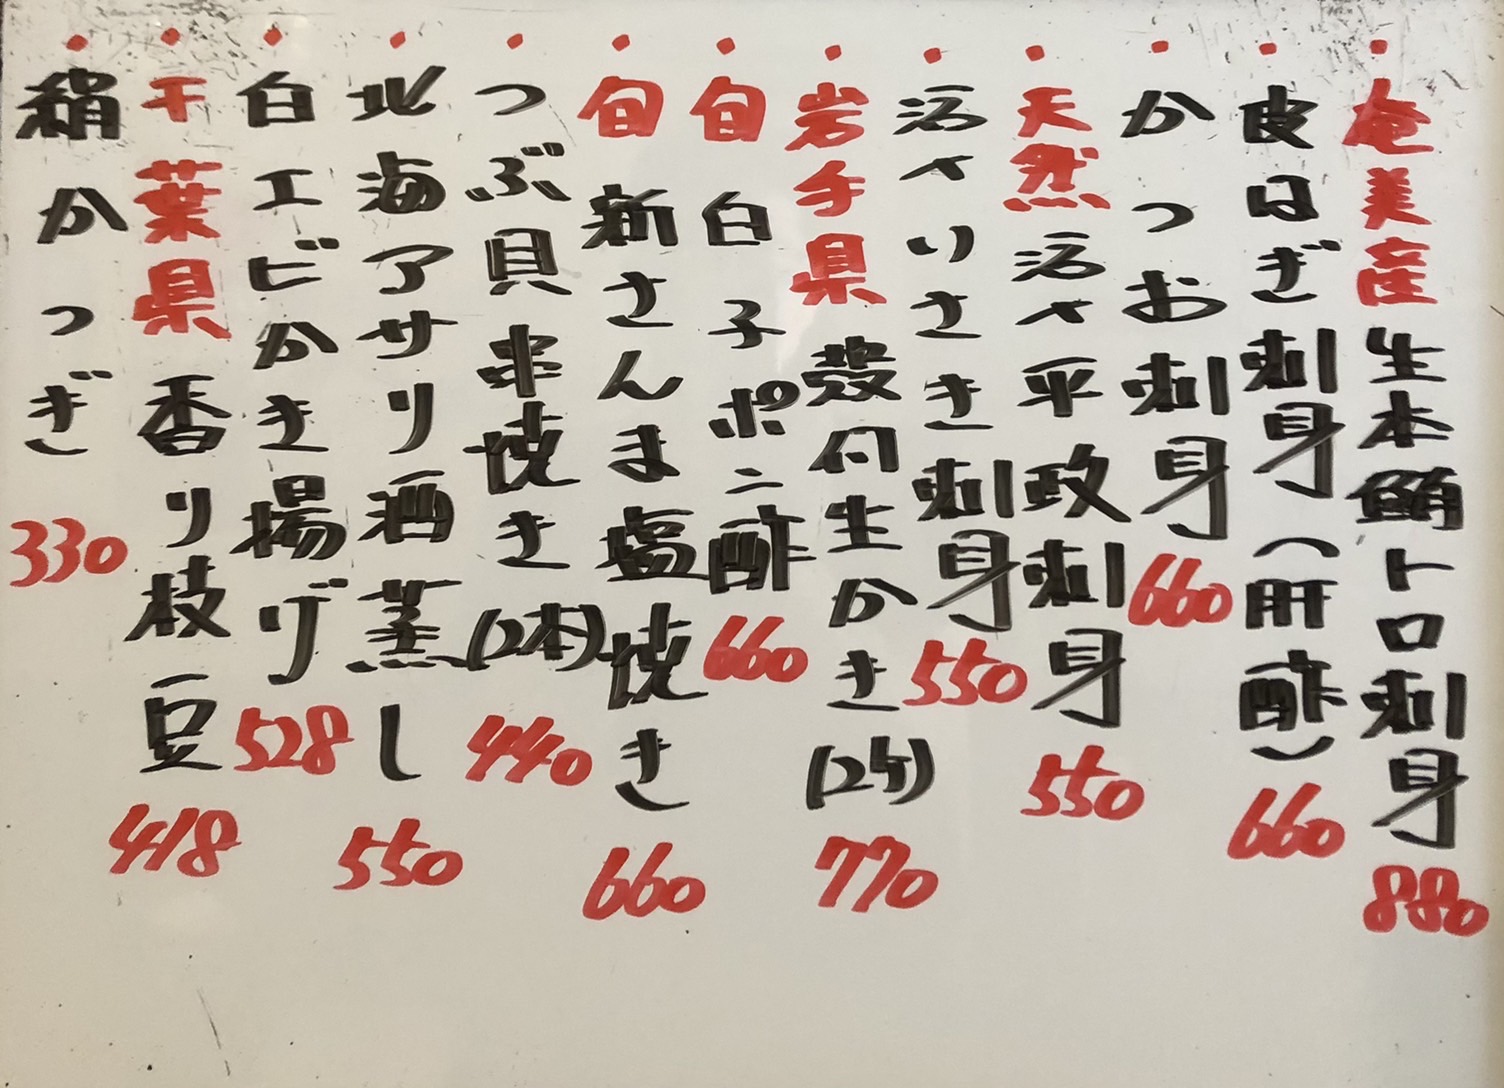 ・奄美産 生本鮪トロ刺身 880
・皮はぎ刺身(肝酢) 660
・かつお刺身 660
・天然 活〆平政刺身 550
・活〆いさき刺身 550
・岩手県 殻付生かき(2ケ) 770
・旬 白子ポン酢 660
・旬 新さんま塩焼き 660
・つぶ貝串焼き(2本) 440
・北海アサリ酒蒸し 550
・白エビかき揚げ 528
・千葉県 香り枝豆 418
・かっぎ 330